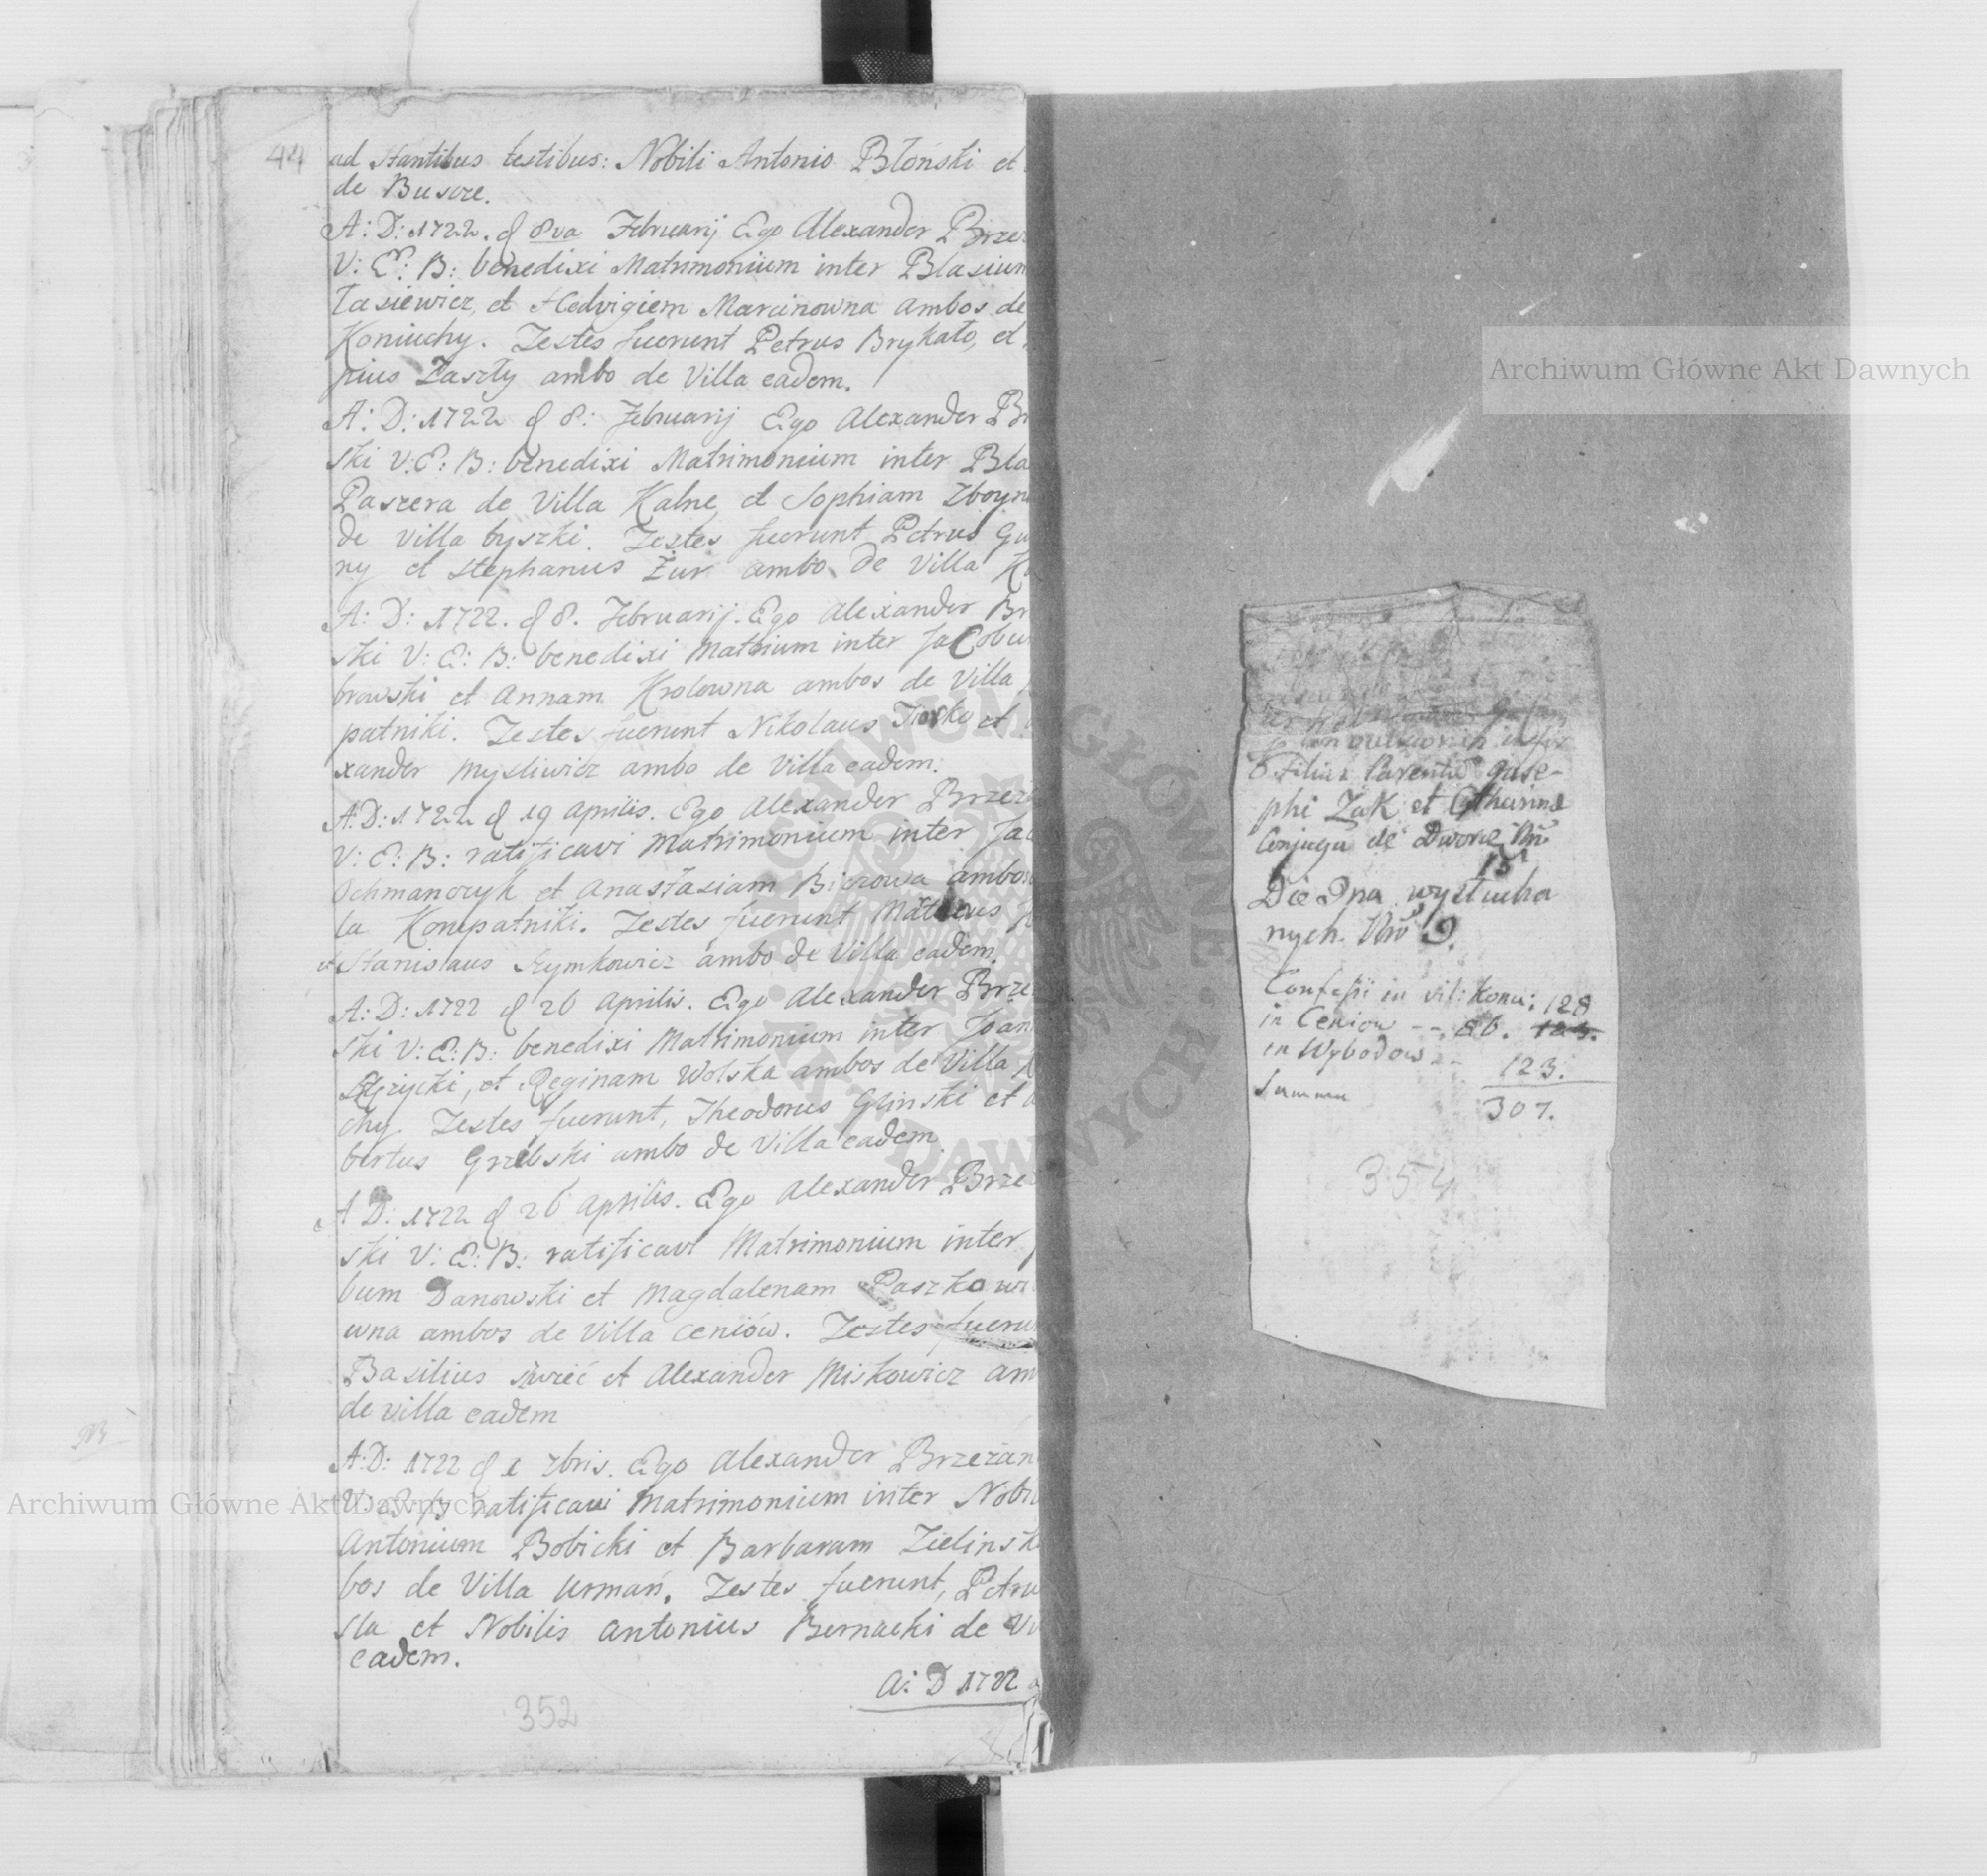 44
ad stantibus testibus: Nobili Antonio Błoński et
de Buszcze.
A: D: 1722. d 8va Februarij Ego Alexander Brze
V: E: B: benedixi Matrimonium inter Blasium
Tasiewicz, et Hedvigiem Marcinowna ambos de
Koniuchy. Testes fuerunt Petrus Brykało, et
pius Zaszły ambo de Villa eadem.
A: D: 1722 d 8: Februarij Ego Alexander Br
ski V: E: B: benedixi Matrimonium inter Bla
Paszera de Villa Kalne, et Sophiam Zboyn
de Villa byszki. Testes fuerunt Petrus Gu
ny et Stephanus Żur ambo de Villa K
A: D: 1722. d 8. Februarij. Ego Alexander Br
ski V: E: B: benedixi Matrium inter Jacobu
browski et Annam Krolowna ambos de Villa
patniki. Testes fuerunt Nikolaus et
xander Mysliwicz ambo de Villa eadem.
A: D: 1722 d 19 Aprilis. Ego Alexander Brzez
V: E: B: ratificavi Matrimonium inter Jac
Ochmanczyk et Anastasiam ambos
la Konpatniki. Testes fuerunt Matheus
et Stanislaus Szymkowicz ambo de Villa eadem.
A: D: 1722 d 26 Aprilis. Ego Alexander Brze
ski V: E: B: benedixi Matrimonium inter Joan
et Reginam Wolska ambos de Villa
chy. Testes fuerunt, Theodorus Glinski et
bertus Grzebski ambo de Villa eadem
A D: 1722 d 26 Aprilis. Ego Alexander Brze
ski V: E: B: ratificavi Matrimonium inter
bum Danowski et Magdalenam Paszkowi
wna ambos de Villa Ceniów. Testes fueru
Basilius et Alexander Miskowicz am
de villa eadem
A: D: 1722 d 1 7bris. Ego Alexander Brzezan
V: E: B: ratificavi Matrimonium inter Nobi
Antonium Bobicki et Barbaram Zielinsk
bos de Villa Urmań. Testes fuerunt, Petru
sla et Nobilis Antonius Bernacki de Vi
eadem.
A: D 1722
352
Filius Parentũ Jose-
phi Żuk et Catharinæ
Conjugũ de Dworce Nrõ
15
Die wysłucha
nych. Nrõ 9.
Confessi in vil: Koniu: 128
in Ceniow -- 86. 123.
in Wybodow -- 123.
Summa 307.
354
Archiwum Główne Akt Dawnych
Archiwum Główne Akt Dawnych
ARCHIWUM GŁÓWNE AKT DAWNYCH